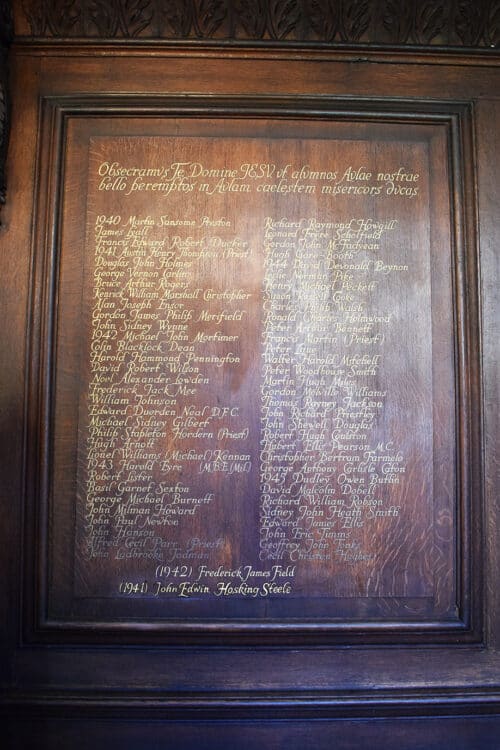 Obsecramvs Te Domine JESV vt alvmnos Avlae nostrae
bello peremptos in Avlam caelestem misericors dvcas
1940 Martin Sansome Preston
James Lyall
Francis Edward Robert Ducker
1941 Austin Henry (Priest)
Douglas John Holmes
George Vernon Carlin
Bruce Arthur Rogers
Kenrick William Marshall Christopher
Alan Joseph Ensor
Gordon James Philip Merifield
John Sidney Wynne
1942 Michael John Mortimer
Colin Blacklock Dean
Harold Hammond Pennington
David Robert Wilson
Noel Alexander Lowden
Frederick Jack Mee
William Johnson
Edward Duorden Neal D.F.C.
Michael Sidney Gilbert
Philip Stapleton Hordern (Priest)
Hugh Arnott
Lionel Williams (Michael) Kennan
1943 Harold Eyre (M.B.E.(Mil.)
Robert Lister
Basil Garnet Sexton
George Michael Burnett
John Milman Howard
John Paul Newton
John Hanson
Alfred Cecil Parr (Priest)
John Ladbrooke Jadman
Richard Raymond Howgill
Leonard Freure Scholfield
Gordon John McFadyean
Hugh Gare-Booth
1944 David Devonald Beynon
Leslie Norman Pike
Henry Michael Peckett
Simon Coke
Charles Philip Walsh
Ronald Charles Holmwood
Peter Arthur Bennett
Francis Martin (Priest)
Peter Lane
Walter Harold Mitchell
Peter Woodhouse Smith
Martin Hugh Miles
Gordon Melville Williams
Thomas Rayney Jackson
John Richard Priestley
John Shewell Douglas
Robert Hugh Goulton
Hubert Ellic Pearson M.C.
Christopher Bertram Farmelo
George Anthony Carlisle Caton
1945 Dudley Owen Butlin
David Malcolm Dobell
Richard William Robson
Sidney John Heath Smith
Edward James Ellis
John Eric Timms
Geoffrey John Tonks
Cecil Christen Hughes
(1942) Frederick James Field
(1941) John Edwin Hosking Steele